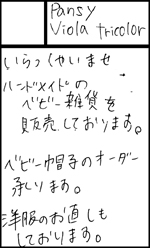 Pansy
Viola tricolor
いらっしゃいませ
ハンドメイドの
ベビー雑貨を
販売しております。
ベビー帽子のオーダー
承ります。
洋服のお直しも
しております。